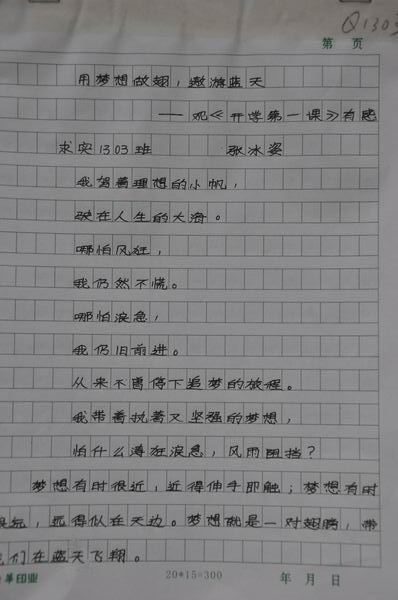 Q1303
第 页
用梦想做翅，遨游蓝天
——观《开学第一课》有感
求实1303班 张冰姿
我驾着理想的小帆，
驶在人生的大海。
哪怕风狂，
我仍然不慌。
哪怕浪急，
我仍旧前进。
从来不曾停下追梦的旅程。
我带着执著又坚强的梦想，
怕什么涛狂浪急，风雨阻挡？
梦想有时很近，近得伸手即触；梦想有时
很远，远得似在天边。梦想就是一对翅膀，带
我们在蓝天飞翔。
印业 20*15=300 年 月 日